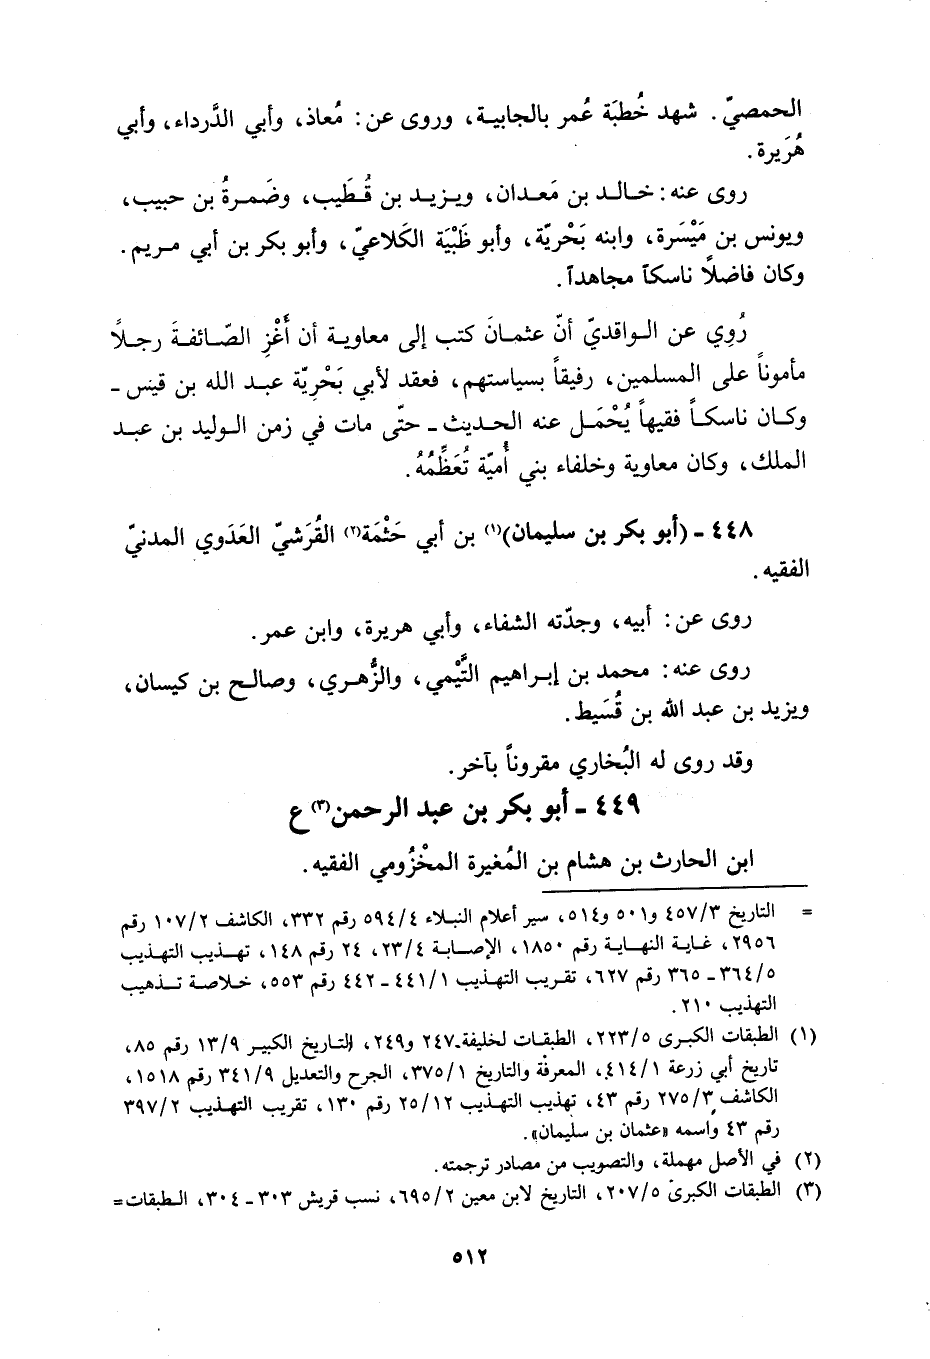 الحمصيّ. شهد خُطبَة عُمر بالجابيـة، وروى عن: مُعاذ، وأبي الدَّرداء، وأبي
هُرَيرة.
روى عنه: خـالـد بن مَعدان، ويـزيـد بن قُـطَيب، وضَمرةُ بن حبيب،
ويونس بن مَيْسَرة، وابنه بَحْريّة، وأبو ظَبْيَة الكَلاعيّ، وأبو بكر بن أبي مـريم.
وكان فاضلًا ناسكاً مجاهداً.
رُوِي عن الـواقديّ أنّ عثمـانَ كتب إلى معاويـة أن أَغْزِ الصّـائفـةَ رجـلًا
مأموناً على المسلمين، رفيقاً بسياستهم، فعقد لأبي بَحْريّة عبـد الله بن قيس ـ
وكـان ناسكـاً فقيهاً يُحْمَـل عنه الحـديث ـ حتّى مات في زمن الـوليد بن عبـد
الملك، وكان معاوية وخلفاء بني أُميّة تُعَظِّمُهُ.
٤٤٨ ـ (أبو بكر بن سليمان)(١) بن أبي حَثْمَة(٢) القُرَشيّ العَدَوي المدنيّ
الفقيه.
روى عن: أبيه، وجدّته الشفاء، وأبي هريرة، وابن عمر.
روى عنه: محمد بن إبـراهيم التَّيْمي، والزُّهـري، وصالـح بن كيسان،
ويزيد بن عبد الله بن قُسَيط.
وقد روى له البُخاري مقروناً بآخر.
٤٤٩ ـ أبو بكر بن عبد الرحمن(٣) ع
ابن الحارث بن هشام بن المُغيرة المخْزُومي الفقيه.
= التاريخ ٤٥٧/٣ و٥٠١ و٥١٤، سير أعلام النبلاء ٥٩٤/٤ رقم ٣٣٢، الكاشف ١٠٧/٢ رقم
٢٩٥٦، غـايـة النهـايـة رقم ١٨٥٠، الإصـابـة ٢٣/٤، ٢٤ رقم ١٤٨، تهـذيب التهـذيب
٣٦٤/٥ ـ ٣٦٥ رقم ٦٢٧، تقريب التهذيب ٤٤١/١ ـ ٤٤٢ رقم ٥٥٣، خـلاصـة تـذهيب
التهذيب ٢١٠.
(١) الطبقات الكبـرى ٢٢٣/٥، الطبقـات لخليفة ٢٤٧ و٢٤٩، التـاريخ الكبيـر ١٣/٩ رقم ٨٥،
تاريخ أبي زرعة ٤١٤/١، المعرفة والتاريخ ٣٧٥/١، الجرح والتعديل ٣٤١/٩ رقم ١٥١٨،
الكاشف ٢٧٥/٣ رقم ٤٣، تهذيب التهـذيب ٢٥/١٢ رقم ١٣٠، تقريب التهـذيب ٣٩٧/٢
رقم ٤٣ واسمه «عثمان بن سليمان».
(٢) في الأصل مهملة، والتصويب من مصادر ترجمته.
(٣) الطبقات الكبرى ٢٠٧/٥، التاريخ لابن معين ٦٩٥/٢، نسب قريش ٣٠٣ ـ ٣٠٤، الـطبقات=
٥١٢